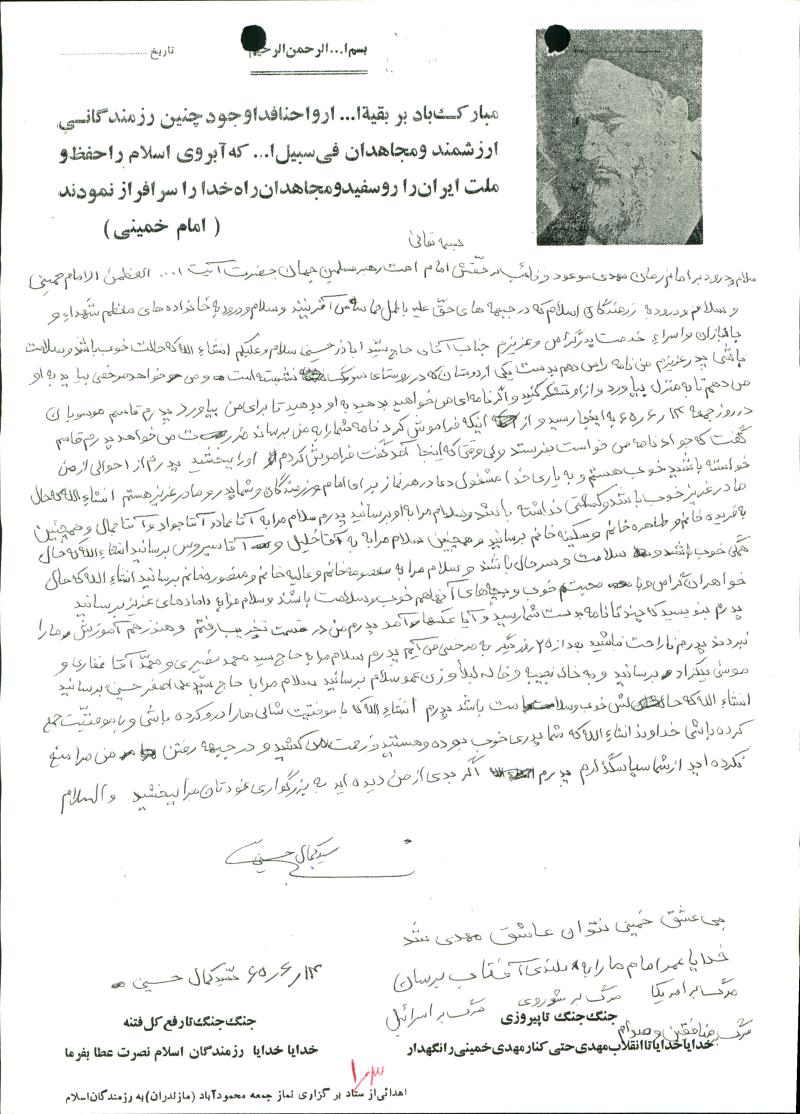 بسم ا... الرحمن الرحیم
تاریخ
مبارک باد بر بقیة ا... ارواحنا فداه وجود چنین رزمندگانی
ارزشمند و مجاهدان فی سبیل ا... که آبروی اسلام را حفظ و
ملت ایران را روسفید و مجاهدان راه خدا را سرافراز نمودند
( امام خمینی )
بسمه تعالی
سلام و درود بر امام زمان مهدی موعود و نائب بر حقش امام امت رهبر مسلمین جهان حضرت آیت ا... العظمی الامام خمینی
و سلام و درود به رزمندگان اسلام که در جبهه های حق علیه باطل حماسه می آفرینند و سلام و درود به خانواده های معظم شهداء و
جانبازان و اسراء خدمت پدر گرامی و عزیزم جناب آقای حاج سید اباذر حسینی سلام و علیکم انشاء الله که حالت خوب باشد و سلامت
باشی پدر عزیزم من نامه را می دهم بدست یکی از دوستان که در روستای نشسته است و می خواهد مرخصی بیاید به او
می دهم تا به منزل بیاورد و از او تشکر کنید و اگر نامه ای می خواهید بدهید به او بدهید تا برای من بیاورد پدرم قاسم موسویان
در روز جمعه ۱۴ر۶ر۶۵ به اینجا رسید و از اینکه فراموش کرد نامه شما را به من برساند می خواهد پدرم قاسم
گفت که جواد نامه می خواست بفرستد ولی وقتی که اینجا آمد گفت فراموش کردم او را ببخشید پدرم از احوالی از من
خواسته باشید خوب هستم و به یاری خدا مشغول دعا در هر نماز برای امام و رزمندگان و شما پدر و مادر عزیز هستم انشاء الله که حال
مادر عزیز خوب باشد و کسالتی نداشته باشد و سلام مرا به او برسانید پدرم سلام مرا به آقا نادر آقا جواد و آقا جمال و همچنین
به فریده خانم و طاهره خانم و سکینه خانم برسانید و همچنین سلام مرا به آقا خلیل و آقا سیروس برسانید انشاء الله که حال
همگی خوب باشند و سلامت و سرحال باشند و سلام مرا به معصومه خانم و عالیه خانم و منصوره خانم برسانید انشاء الله که حال
خواهران گرامی و با محبتم خوب و بچه های آنها هم خوب و سلامت باشند و سلام مرا به دامادهای عزیز برسانید
پدرم بنویسید که چند تا نامه بدست شما رسید و آیا عکسها درآمد پدرم من در قسمت رفتم و هنوز هم آموزش ما را
نبردند پدرم ناراحت نباشید بعد از ۲۵ روز دیگر به مرخصی می آیم پدرم سلام مرا به حاج سید محمد نصیری و محمد آقا غفاری و
موسی برسانید و به خاله نجیبه و خاله لیلا و زن عمو سلام برسانید سلام مرا به حاج سید علی اصغر حسینی برسانید
انشاء الله که خوب و سلامت باشد پدرم انشاء الله که با موفقیت شالی ها را درو کرده باشی و با موفقیت جمع
کرده باشی خداوند انشاء الله که شما پدری خوب بوده و هستید زحمت می کشید و در جبهه رفتن من مرا منع
نکرده اید از شما سپاسگذارم پدرم اگر بدی از من دیده اید به بزرگواری خودتان مرا ببخشید والسلام
سید کمال حسینی
بی عشق خمینی نتوان عاشق مهدی شد
خدایا عمر امام ما را به بلندی آفتاب برسان
مرگ بر امریکا مرگ بر شوروی مرگ بر اسرائیل
مرگ بر منافقین و صدام
۱۴ر۶ر۶۵ سید کمال حسینی
جنگ جنگ تا پیروزی
خدایا خدایا تا انقلاب مهدی حتی کنار مهدی خمینی را نگهدار
جنگ جنگ تا رفع کل فتنه
خدایا خدایا رزمندگان اسلام نصرت عطا بفرما
۱۰۳
اهدائی از ستاد برگزاری نماز جمعه محمودآباد (مازندران) به رزمندگان اسلام